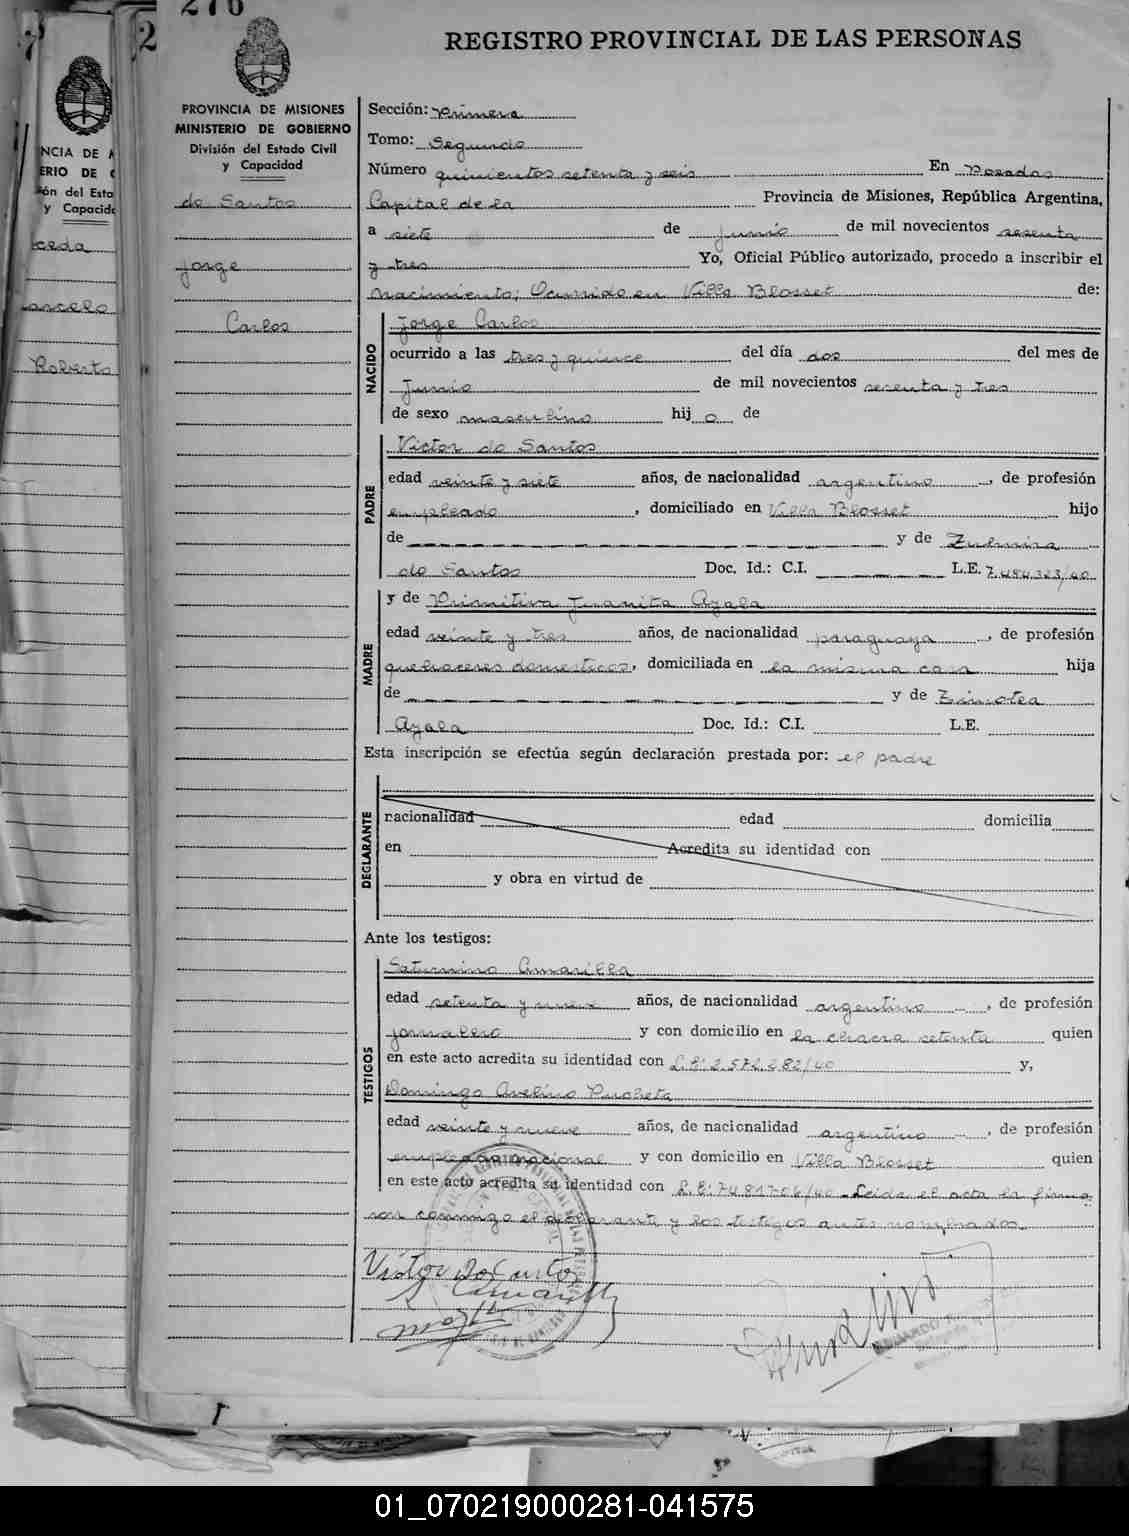 276
2
REGISTRO PROVINCIAL DE LAS PERSONAS
PROVINCIA DE MISIONES
MINISTERIO DE GOBIERNO
División del Estado Civil
y Capacidad
do Santos
Jorge
Carlos
Sección: Primera
Tomo: Segundo
Número quinientos setenta y seis En Posadas
Capital de la Provincia de Misiones, República Argentina,
a siete de Junio de mil novecientos sesenta
y tres Yo, Oficial Público autorizado, procedo a inscribir el
Nacimiento; Ocurrido en Villa Blosset de:
NACIDO
Jorge Carlos
ocurrido a las tres y quince del día dos del mes de
Junio de mil novecientos sesenta y tres
de sexo masculino hij o de
PADRE
Victor do Santos
edad veinte y siete años, de nacionalidad argentino, de profesión
empleado, domiciliado en Villa Blosset hijo
de y de Zulmira
do Santos Doc. Id.: C.I. L.E. 7.484.323/40
MADRE
y de Primitiva Juanita Ayala
edad veinte y tres años, de nacionalidad paraguaya, de profesión
quehaceres domesticos, domiciliada en la misma casa hija
de y de Timotea
Ayala Doc. Id.: C.I. L.E.
Esta inscripción se efectúa según declaración prestada por: el padre
DECLARANTE
nacionalidad edad domicilia
en Acredita su identidad con
y obra en virtud de
Ante los testigos:
TESTIGOS
Saturnino Amarilla
edad setenta y nueve años, de nacionalidad argentino, de profesión
jornalero y con domicilio en la chacra setenta quien
en este acto acredita su identidad con L.E: 2.572.282/40 y,
Domingo Avelino Pucheta
edad veinte y nueve años, de nacionalidad argentino, de profesión
empleado nacional y con domicilio en Villa Blosset quien
en este acto acredita su identidad con L.E: 7481706/40 Leida el acta la firma
ron conmigo el declarante y los testigos antes nombrados.
Victor Do Santos
S Amarilla
01_070219000281-041575
NCIA DE
ERIO DE
ón del Esta
y Capacida
ceda
arcelo
Roberto